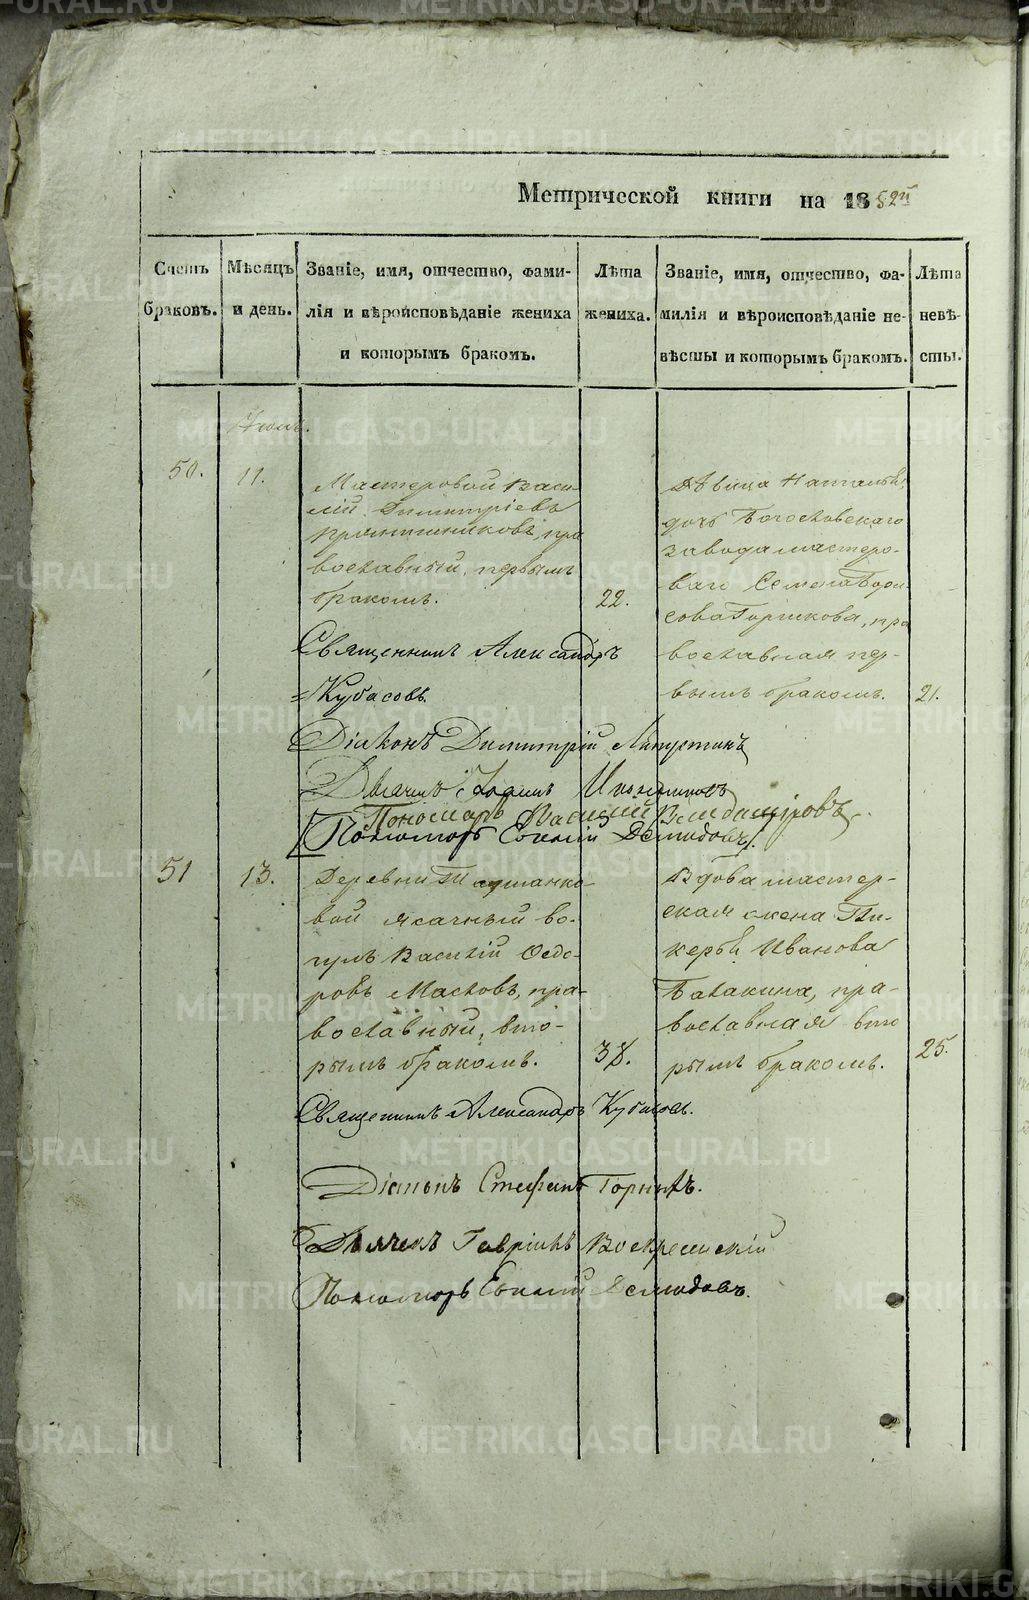 Метрической книги на 1852й
Счетъ браковъ.
Мѣсяцъ и день.
Званіе, имя, отчество, фами-
лія и вѣроисповѣданіе жениха
и которымъ бракомъ.
Лѣта жениха.
Званіе, имя, отчество, фа-
милія и вѣроисповѣданіе не-
вѣсты и которымъ бракомъ.
Лѣта невѣ-
сты.
50.
11.
Мастеровой Васи-
лій Димитріевъ
Прянишниковъ, пра
вославный, первымъ
бракомъ.
22.
Дѣвица Наталья,
дочь Богословскаго
завода мастеро-
ваго Семена Бори-
сова Горшкова, пра
вославная пер-
вымъ бракомъ.
21.
Священникъ Александръ
Кубасовъ.
Діаконъ Димитрій
Дьячекъ
Пономарь Василій
Пономарь Евгеній Демидовъ.
51
13.
Деревни
вой ясачный во-
гулъ Василій Ѳедо-
ровъ Масловъ, пра-
вославный, вто-
рымъ бракомъ.
38.
Вдова мастер-
ская жена Гли-
керья Иванова
Балакина, пра-
вославная вто
рымъ бракомъ.
25.
Священникъ Александръ Кубасовъ.
Діаконъ Стефанъ Горныхъ.
Дьячекъ Гавріилъ Воскресенскій
Пономарь Евгеній Демидовъ.
METRIKI.GASO-URAL.RU